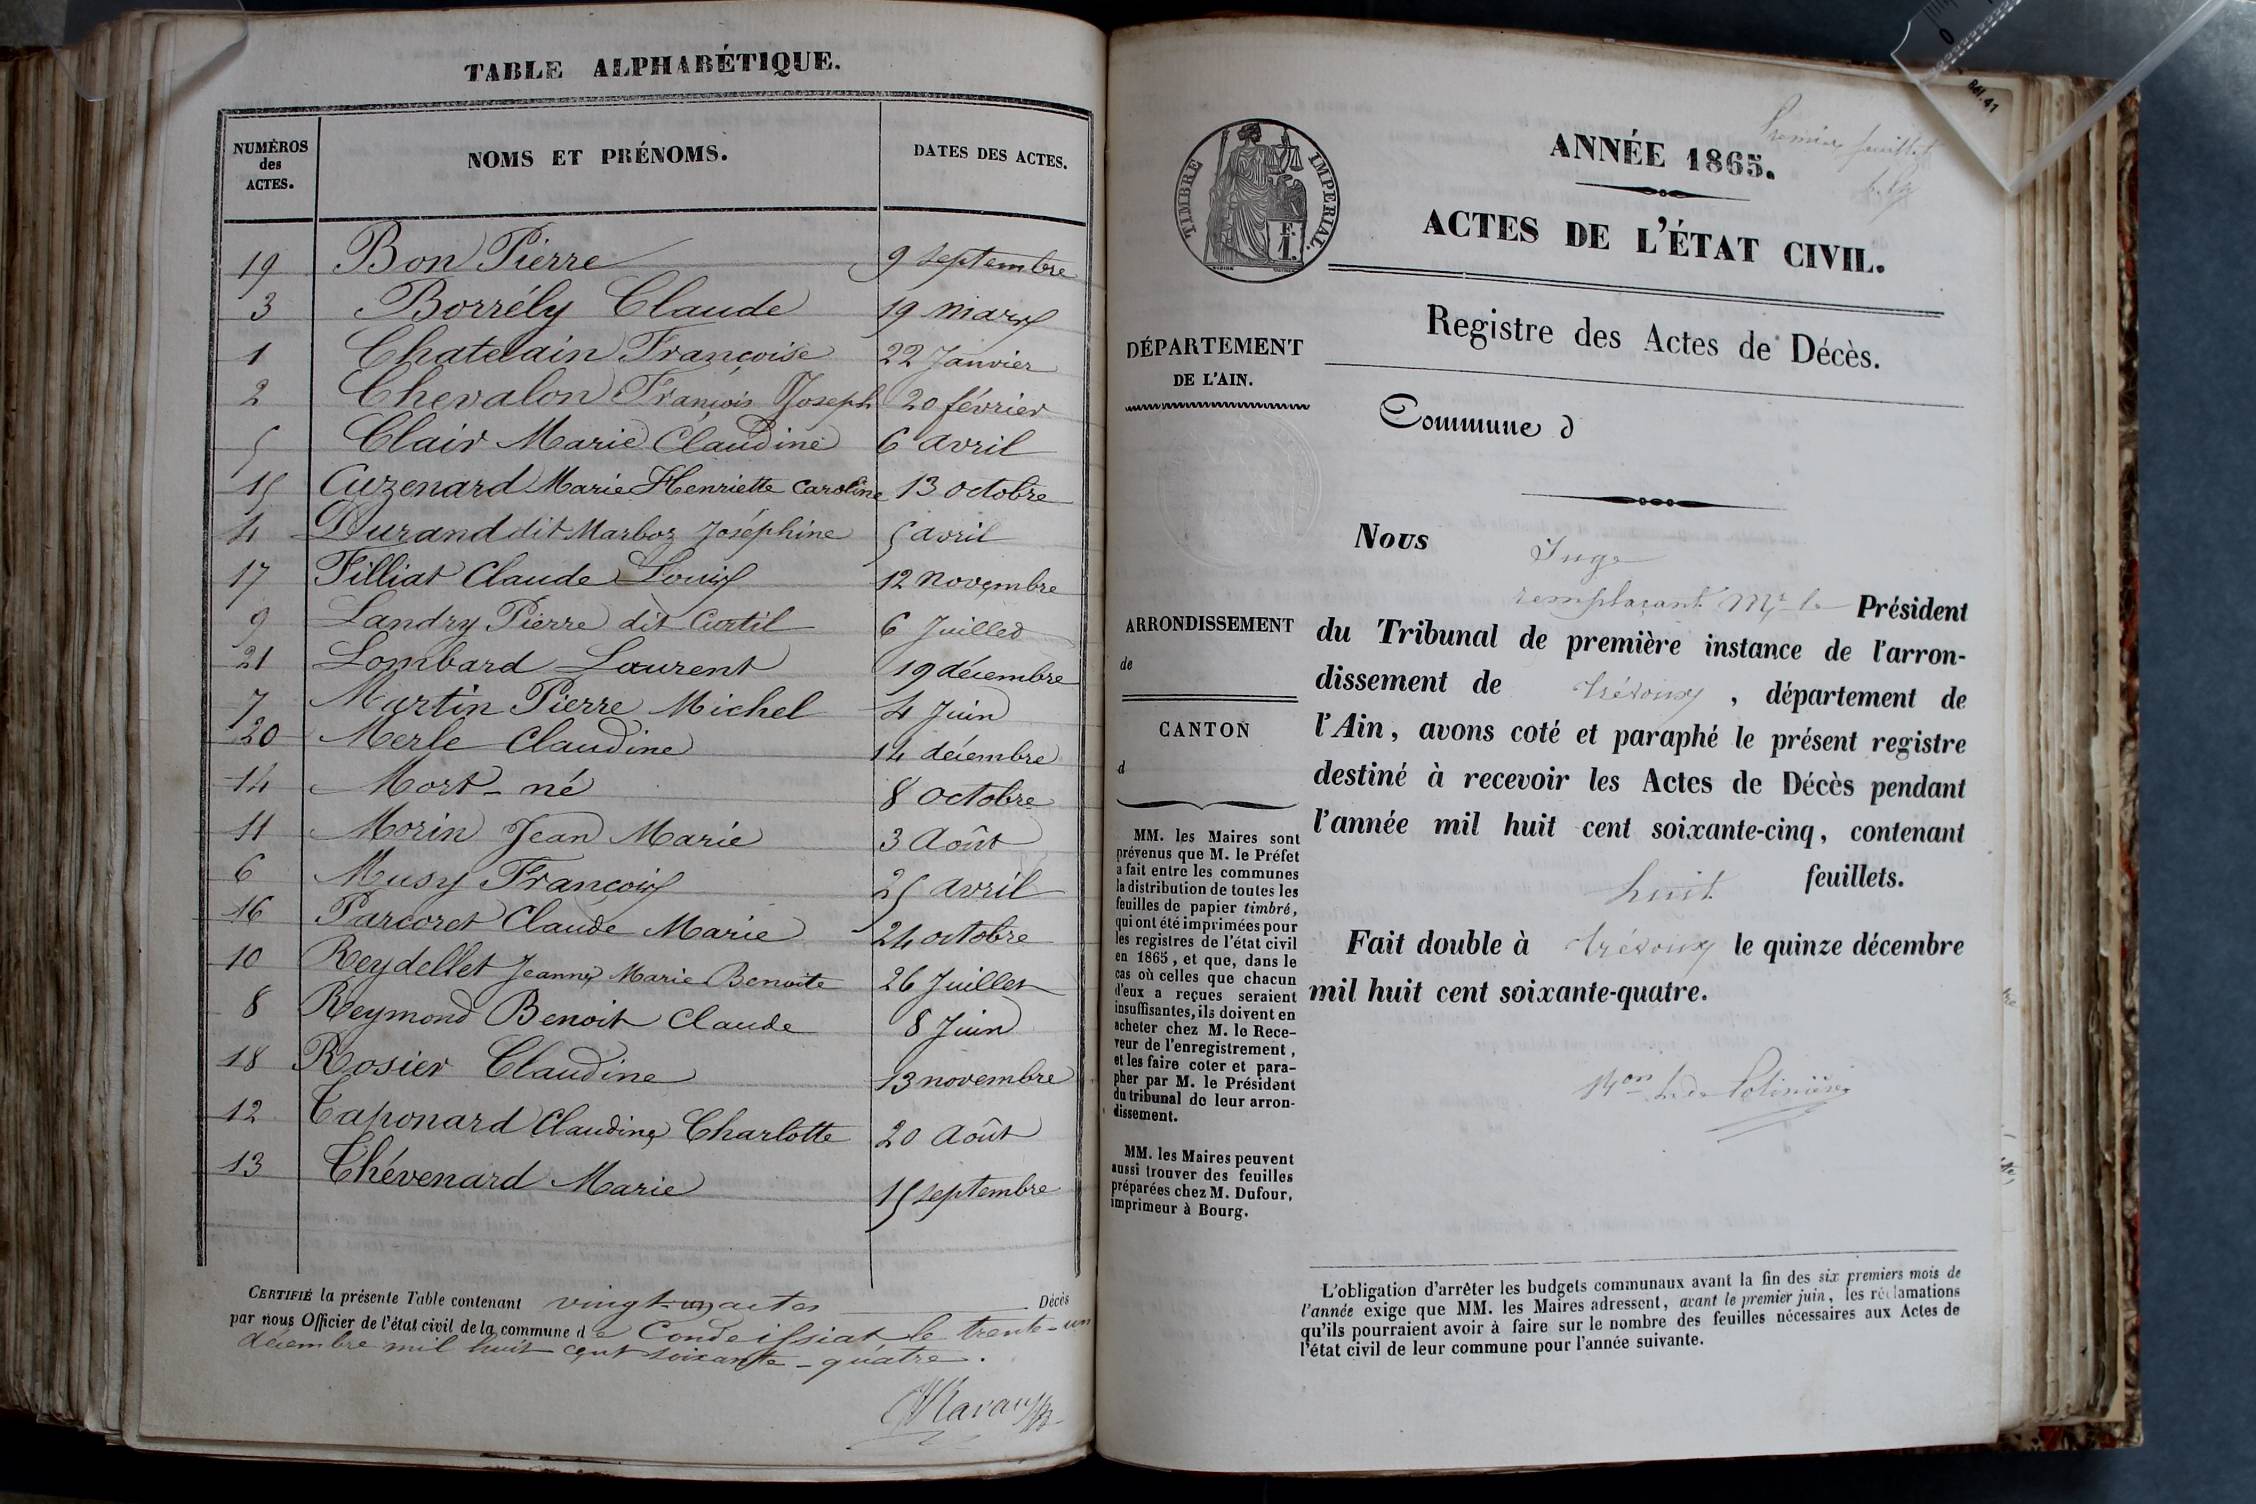 TABLE ALPHABÉTIQUE.
NUMÉROS des ACTES. NOMS ET PRÉNOMS. DATES DES ACTES.
19 Bon Pierre 9 septembre
3 Borrély Claude 19 mars
1 Chatelain Françoise 22 Janvier
2 Chevalon François Joseph 20 février
5 Clair Marie Claudine 6 avril
15 Cuzenard Marie Henriette Caroline 13 octobre
4 Durand dit Marboz Joséphine 5 avril
17 Filliat Claude Louis 12 novembre
9 Landry Pierre dit Curtil 6 Juillet
21 Lombard Laurent 19 décembre
7 Martin Pierre Michel 4 Juin
20 Merle Claudine 14 décembre
14 Mort-né 8 octobre
11 Morin Jean Marie 3 Août
6 Musy François 25 avril
16 Parcoret Claude Marie 24 octobre
10 Reydellet Jeanne Marie Benoite 26 Juillet
8 Reymond Benoit Claude 8 Juin
18 Rosier Claudine 13 novembre
12 Taponard Claudine Charlotte 20 Août
13 Thévenard Marie 15 septembre
CERTIFIÉ la présente Table contenant vingt-un actes Décès
par nous Officier de l'état civil de la commune de Condeissiat le trente-un
décembre mil huit cent soixante-quatre.
Premier feuillet
TIMBRE IMPERIAL.
F.
1.
ANNÉE 1865.
ACTES DE L'ÉTAT CIVIL.
Registre des Actes de Décès.
DÉPARTEMENT
DE L'AIN.
Commune d
ARRONDISSEMENT
de
CANTON
d
MM. les Maires sont
prévenus que M. le Préfet
a fait entre les communes
la distribution de toutes les
feuilles de papier timbré,
qui ont été imprimées pour
les registres de l'état civil
en 1865, et que, dans le
cas où celles que chacun
d'eux a reçues seraient
insuffisantes, ils doivent en
acheter chez M. le Rece-
veur de l'enregistrement,
et les faire coter et para-
pher par M. le Président
du tribunal de leur arron-
dissement.
MM. les Maires peuvent
aussi trouver des feuilles
préparées chez M. Dufour,
imprimeur à Bourg.
Nous Juge
remplaçant Mr le Président
du Tribunal de première instance de l'arron-
dissement de Trévoux, département de
l'Ain, avons coté et paraphé le présent registre
destiné à recevoir les Actes de Décès pendant
l'année mil huit cent soixante-cinq, contenant
huit feuillets.
Fait double à Trévoux le quinze décembre
mil huit cent soixante-quatre.
L'obligation d'arrêter les budgets communaux avant la fin des six premiers mois de
l'année exige que MM. les Maires adressent, avant le premier juin, les réclamations
qu'ils pourraient avoir à faire sur le nombre des feuilles nécessaires aux Actes de
l'état civil de leur commune pour l'année suivante.